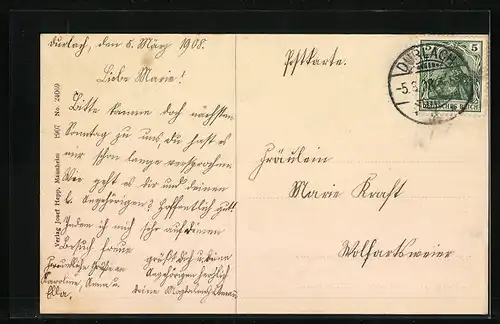 Durlach, den 5. März 1908.
Liebe Marie!
Bitte komme doch nächsten
Sonntag zu uns, du hast es
mir schon lange versprochen
Wie geht es dir und deinen
l. Angehörigen? Hoffentlich gut!
Indem ich mich sehr auf deinen
Besuch freue grüßt dich u. deine
Angehörigen herzlich
deine Magdalena
Freundliche Grüße von
Karoline, Anna u.
Ella.
Verlag Josef Hepp, Mannheim 1907 No. 24069
Postkarte.
DURLACH
-5.3.
5
DEUTSCHES REICH
Fräulein
Marie Kraft
Wolfartsweier